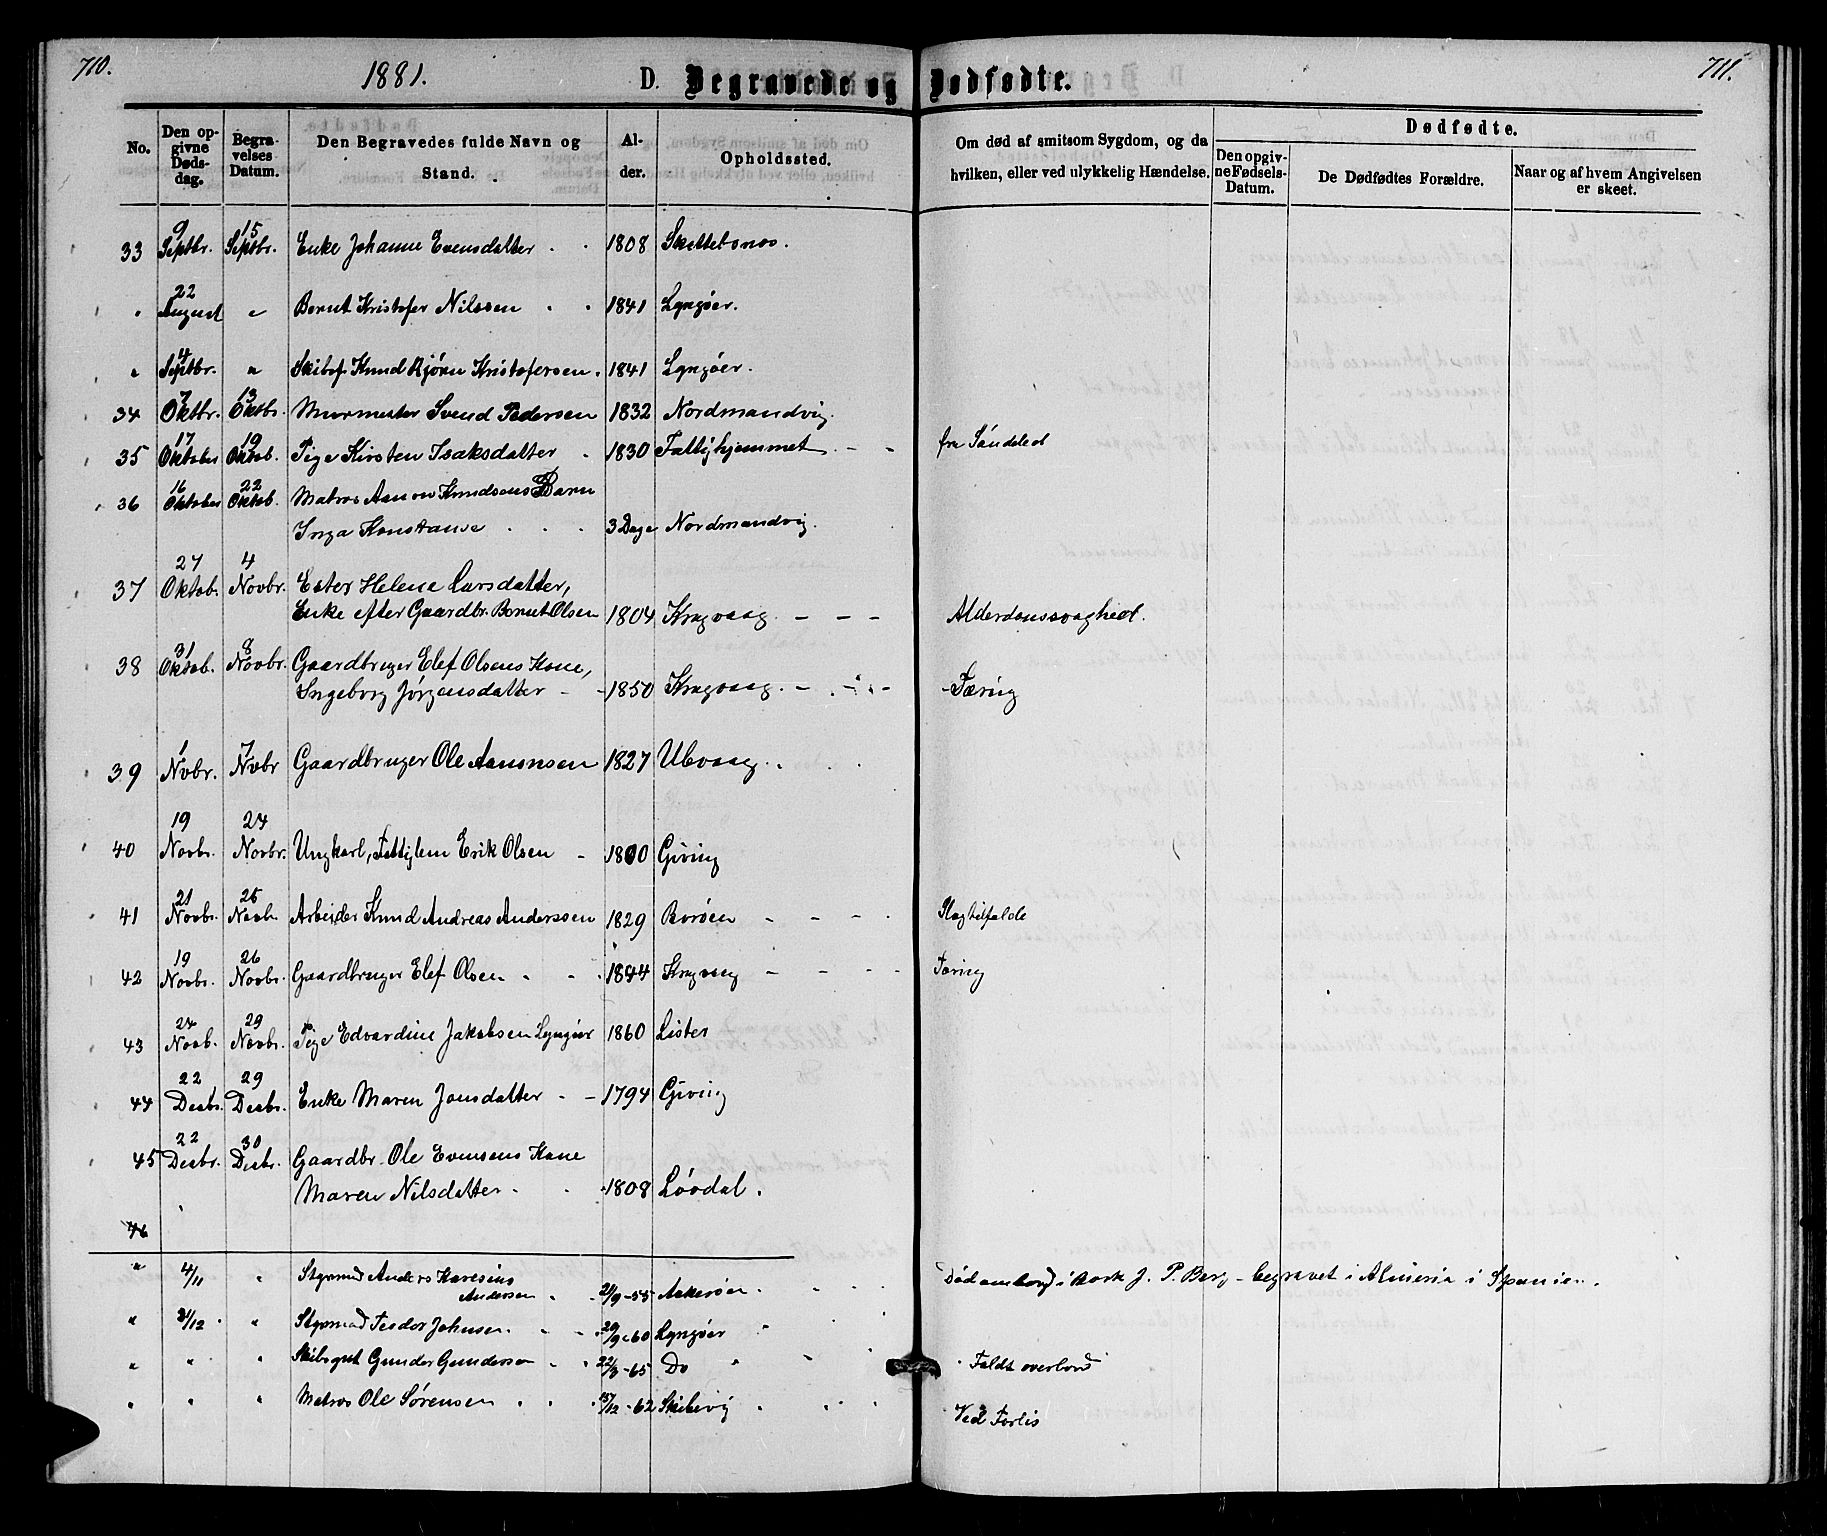 710.
1881.
D. Begravede og Dødfødte.
711.
No.
Den opgivne Dødsdag.
Begravelses Datum.
Den Begravedes fulde Navn og Stand.
Alder.
Opholdssted.
Om død af smitsom Sygdom, og da hvilken, eller ved ulykkelig Hændelse.
Dødfødte.
Den opgivne Fødsels-Datum.
De Dødfødtes Forældre.
Naar og af hvem Angivelsen er skeet.
33 9 Septbr. 15 Septbr. Enke Johanne Evensdatter 1808
" 22 August " Bernt Kristofer Nilssen 1841 Lyngøer.
" 4 Septbr. " Skibsf. Knud Bjørn Kristofersen. 1841 Lyngøer.
34 7 Oktbr. 13 Oktbr. Murmester Svend Pedersen 1832 Nordmandvig.
35 17 Oktober 19 Oktob. Pige Kirsten Isaksdatter 1830 Fattighjemmet - - fra Søndeled
36 16 Oktober 22 Oktob. Matros Aanon Knudsens Barn
Inga Konstanse 3 Dage Nordmandvig.
37 27 Oktob. 4 Novbr. Ester Helene Larsdatter,
Enke efter Gaardbr. Bernt Olsen 1804 Kragvaag - - - Alderdomssvaghed.
38 31 Oktob. 8 Novbr. Gaardbruger Elef Olsens Kone,
Ingeborg Jørgensdatter 1850 Kragvaag - Tæring
39 1 Novbr. 7 Novbr Gaardbruger Ole Aanonsen 1827 Ubvaag.
40 19 Novbr. 24 Novbr. Ungkarl, Fattiglem Erik Olsen 1800 Giving
41 21 Novbr. 25 Novbr. Arbeider Knud Andreas Anderssen 1829 Borøen - - - Slagtilfælde
42 19 Novbr. 26 Novbr. Gaardbruger Elef Olsen 1844 Kragvaag - - - Tæring
43 24 Novb. 29 Novbr. Pige Edvardine Jakobsen Lyngøer 1860 Lister
44 22 Desbr. 29 Desbr. Enke Maren Jonsdatter 1794 Giving
45 22 Desbr. 30 Desbr. Gaardbr. Ole Evensens Kone
Maren Nilsdatter 1808 Løvdal.
46
" 4/11 " Styrmd Anders
Andersen 21/9-55 Askerøen. Død ombord i Bark J. P. Berg - begravet i Almeria i Spanien.
" 31/12 " Styrmd Feodor Johnsen. 29/9-60 Lyngøer
" " " Skibsgut Gunder Gundersen 22/3-65 Do Faldt overbord
" " " Matros Ole Sørensen 15/12-62 Skibsvig Ved Forlis